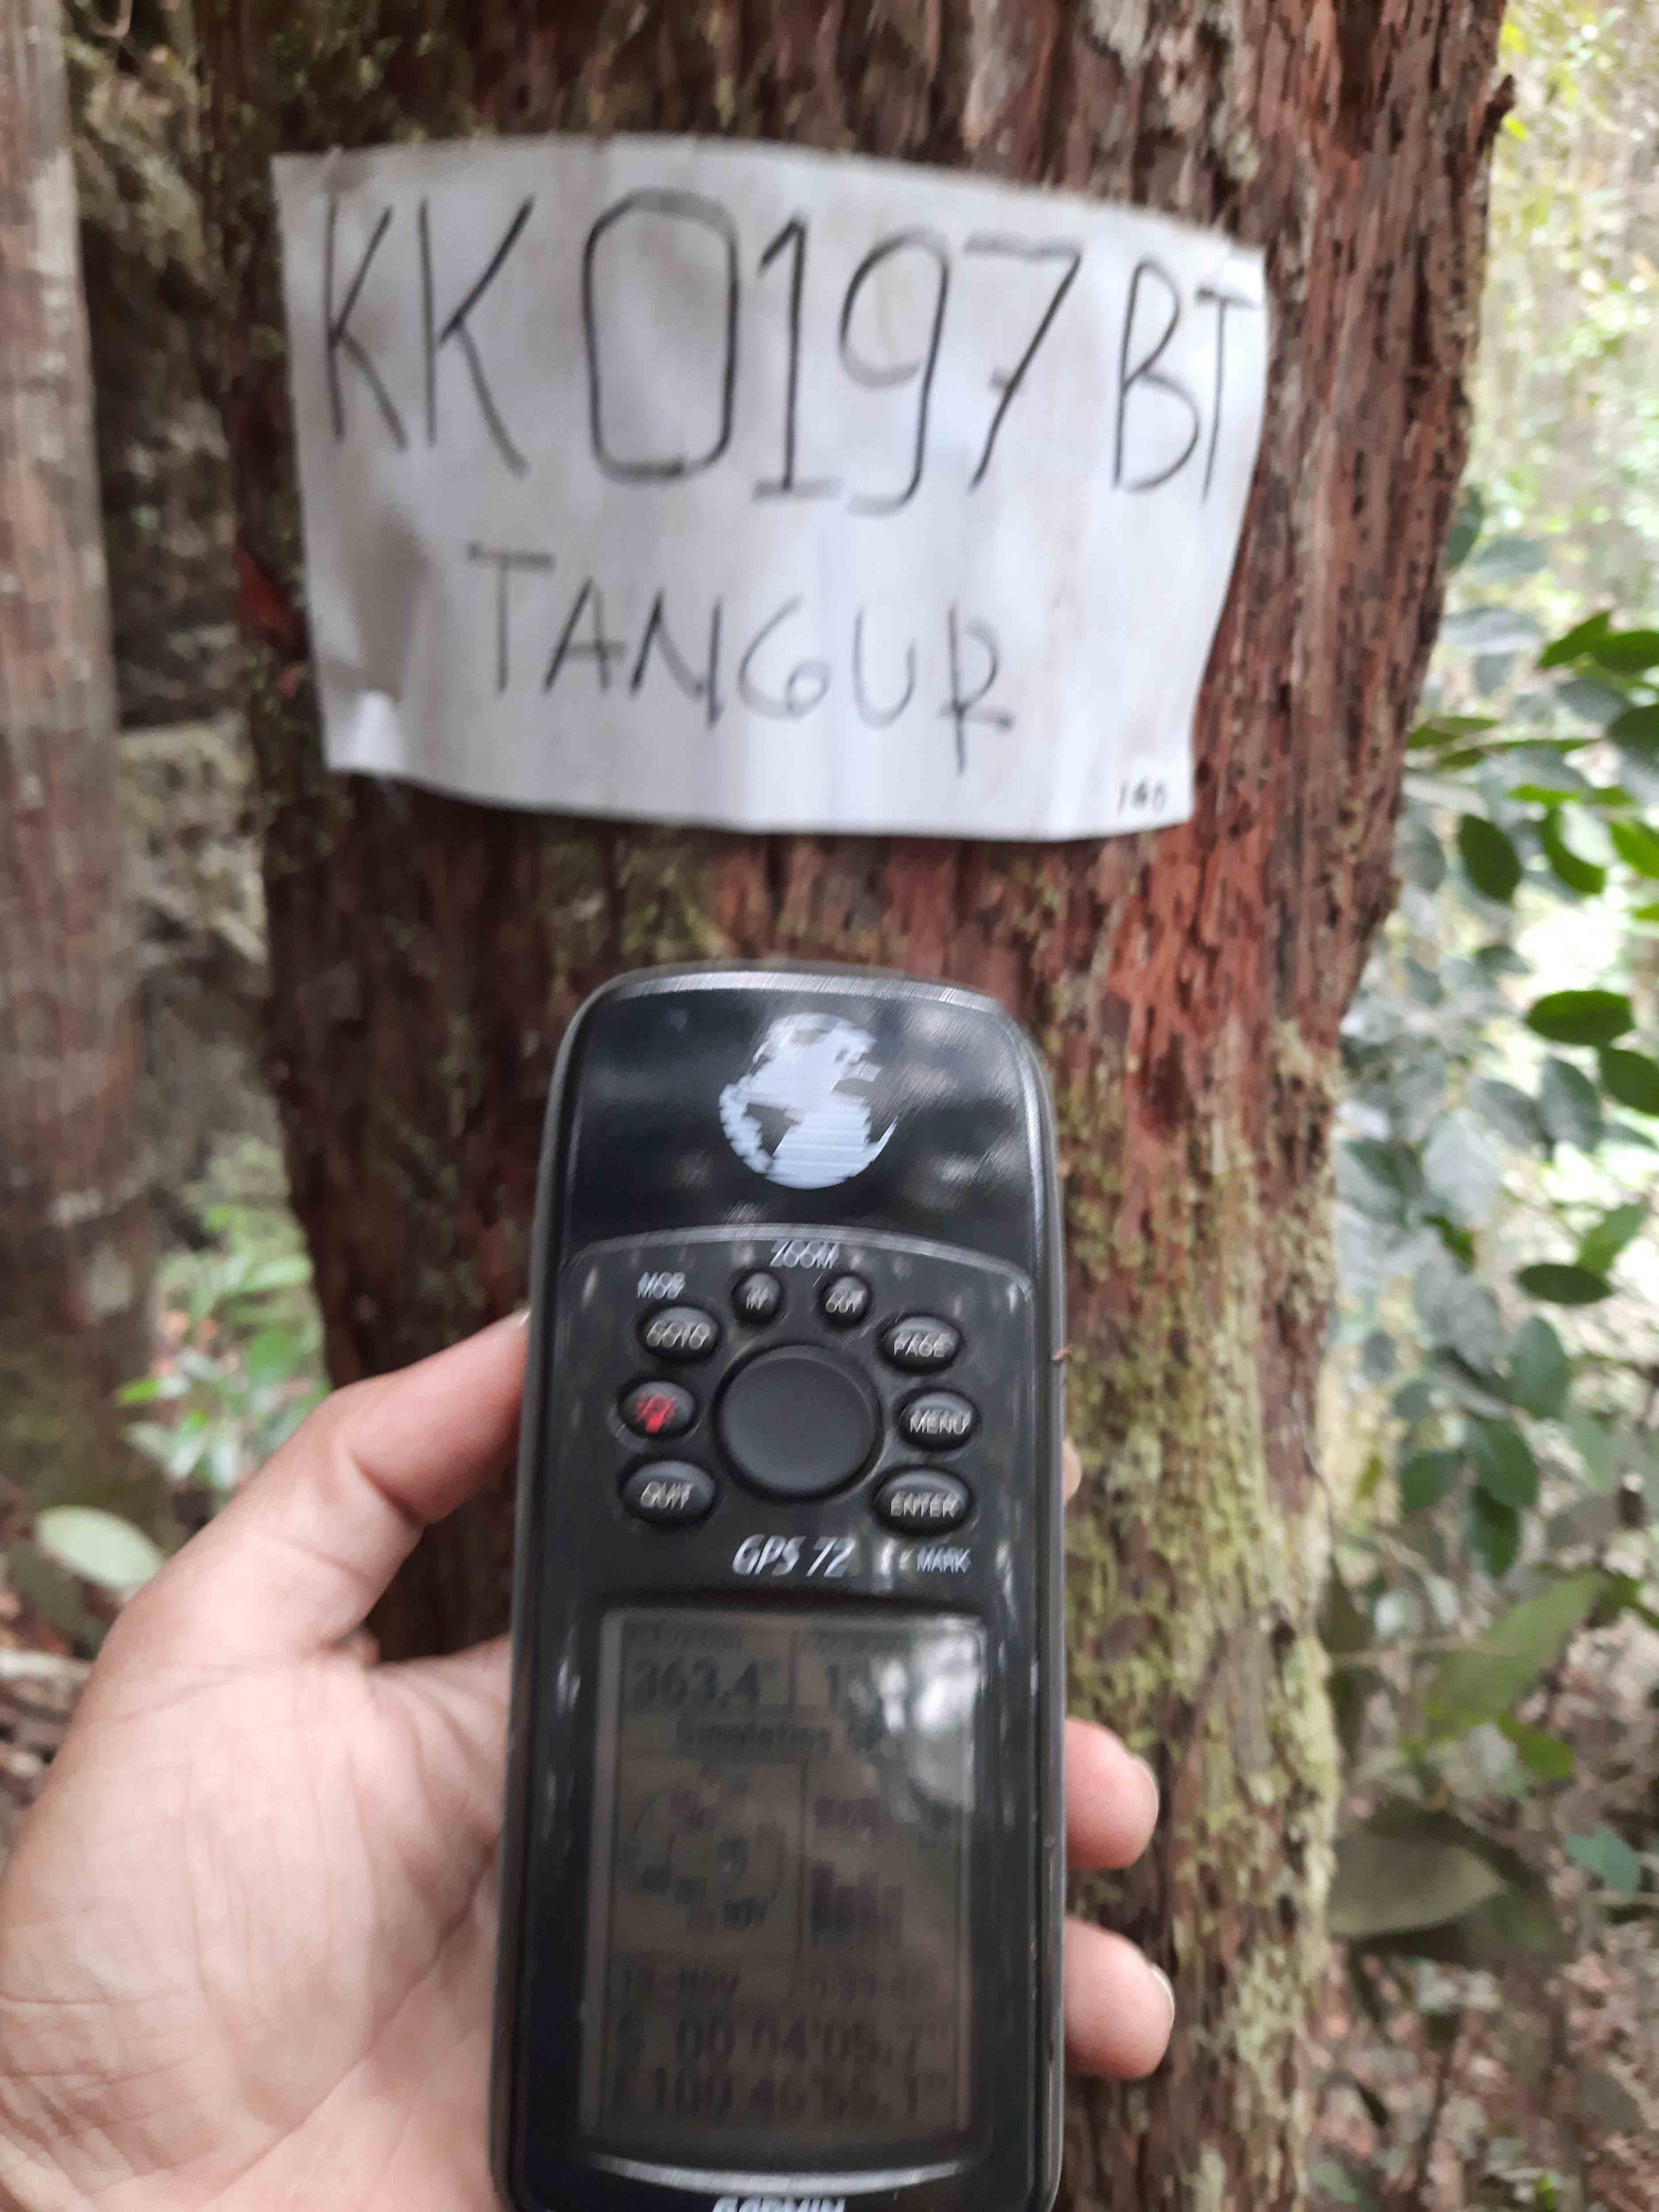 KK 0197 BT
TANGUR
160
ZOOM
MOB
IN
OUT
GOTO
PAGE
MENU
QUIT
ENTER
GPS 72
MARK
363.4
Simulating
00 04'05.7"
GARMIN